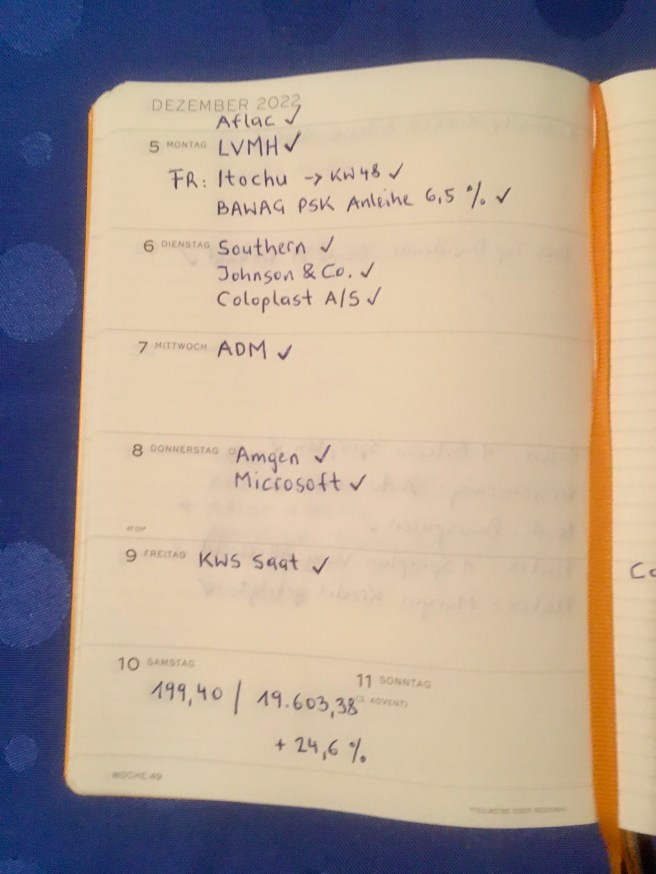 DEZEMBER 2022
Aflac ✓
5 MONTAG LVMH ✓
FR: Itochu -> KW48 ✓
BAWAG PSK Anleihe 6,5 % ✓
6 DIENSTAG Southern ✓
Johnson & Co. ✓
Coloplast A/S ✓
7 MITTWOCH ADM ✓
8 DONNERSTAG Amgen ✓
Microsoft ✓
9 FREITAG KWS Saat ✓
10 SAMSTAG
11 SONNTAG
(3. ADVENT)
199,40 / 19.603,38
+ 24,6 %
WOCHE 49
Co